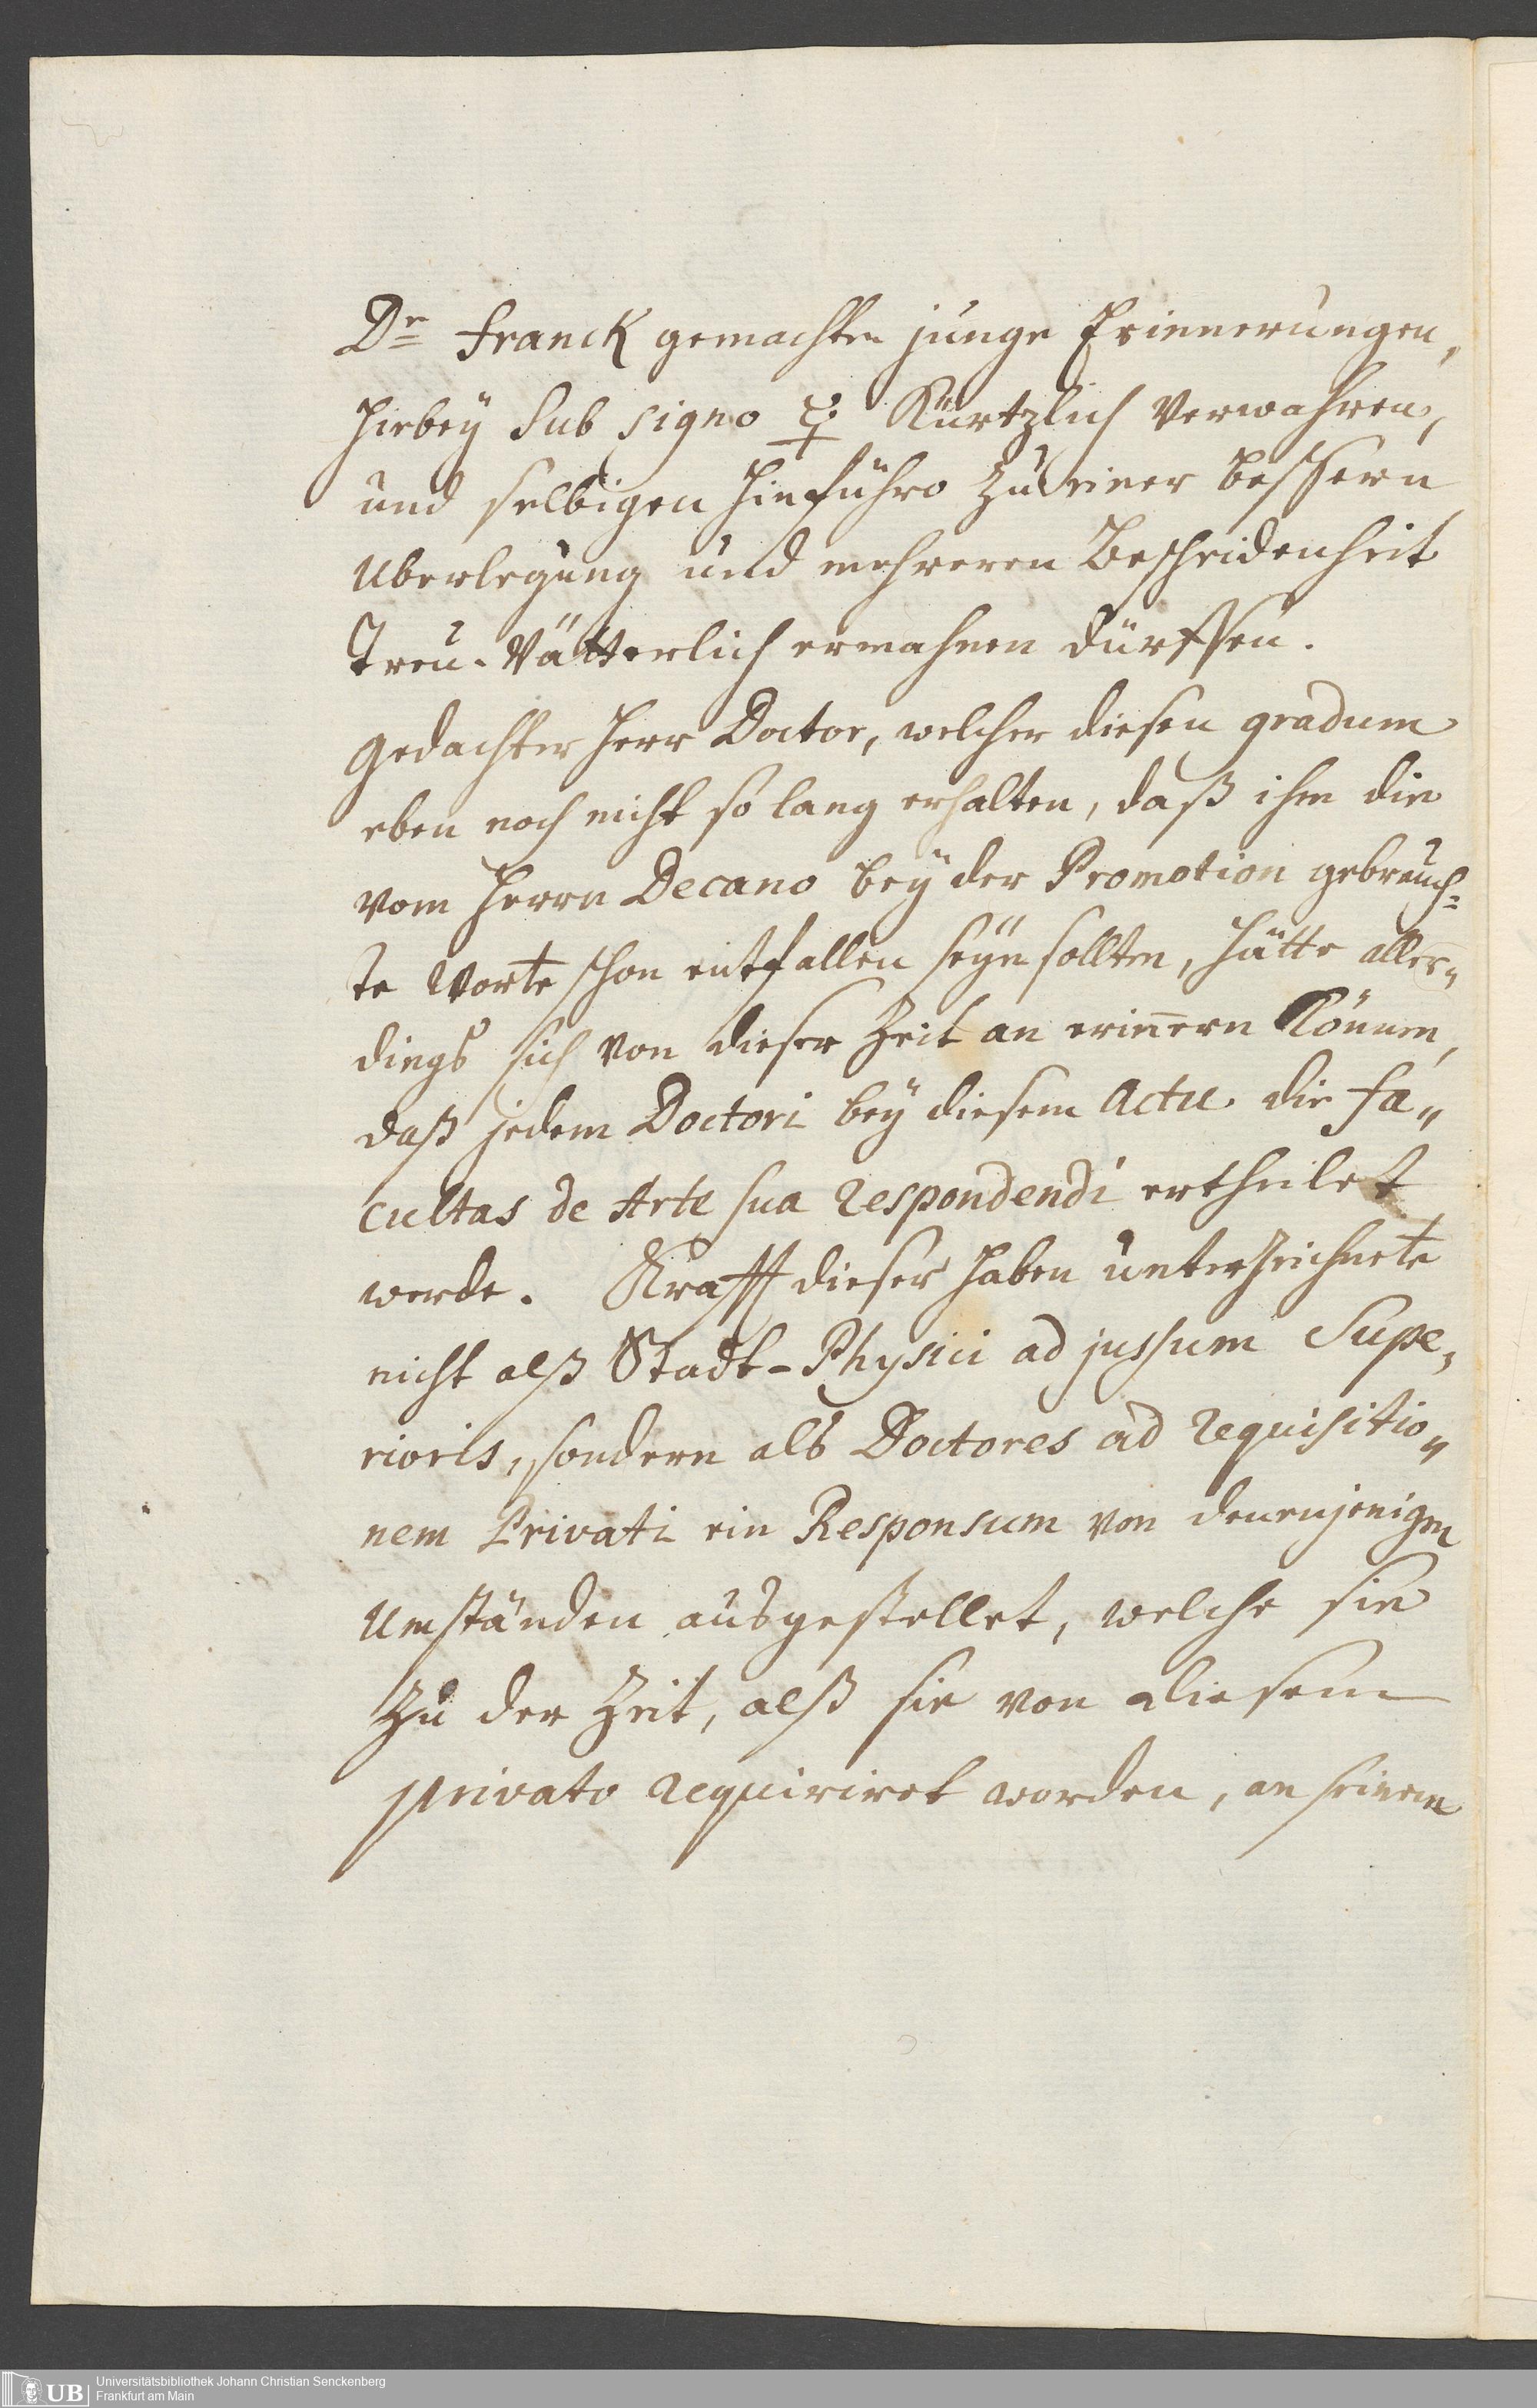 Dr Franck gemachten junge Erinnerungen,
hirbey sub signo ☿ Kürtzlich verwahren,
und selbigen hinführo zu einer bessern
Uberlegung und mehreren Bescheidenheit
Treu-Vätterlich ermahnen dürffen.
Gedachter Herr Doctor, welcher diesen gradum
eben noch nicht so lang erhalten, daß ihm die
vom Herrn Decano bey der Promotion gebrauch=
te Worte schon entfallen seyn sollten, hätte aller„
dings sich von dieser Zeit an erinern Können,
daß jedem Doctori bey diesem Actu die Fa„
cultas de Arte sua respondendi ertheilet
werde. Krafft dieser haben unterzeichnete
nicht alß Stadt-Physici ad jussum Supe„
rioris, sondern als Doctores ad requisitio„
nem Privati ein Responsum von denenjenigen
Umständen ausgestellet, welche sie
zu der Zeit, alß sie von diesem
privato requiriret worden, an seinem
UB Universitätsbibliothek Johann Christian Senckenberg
Frankfurt am Main